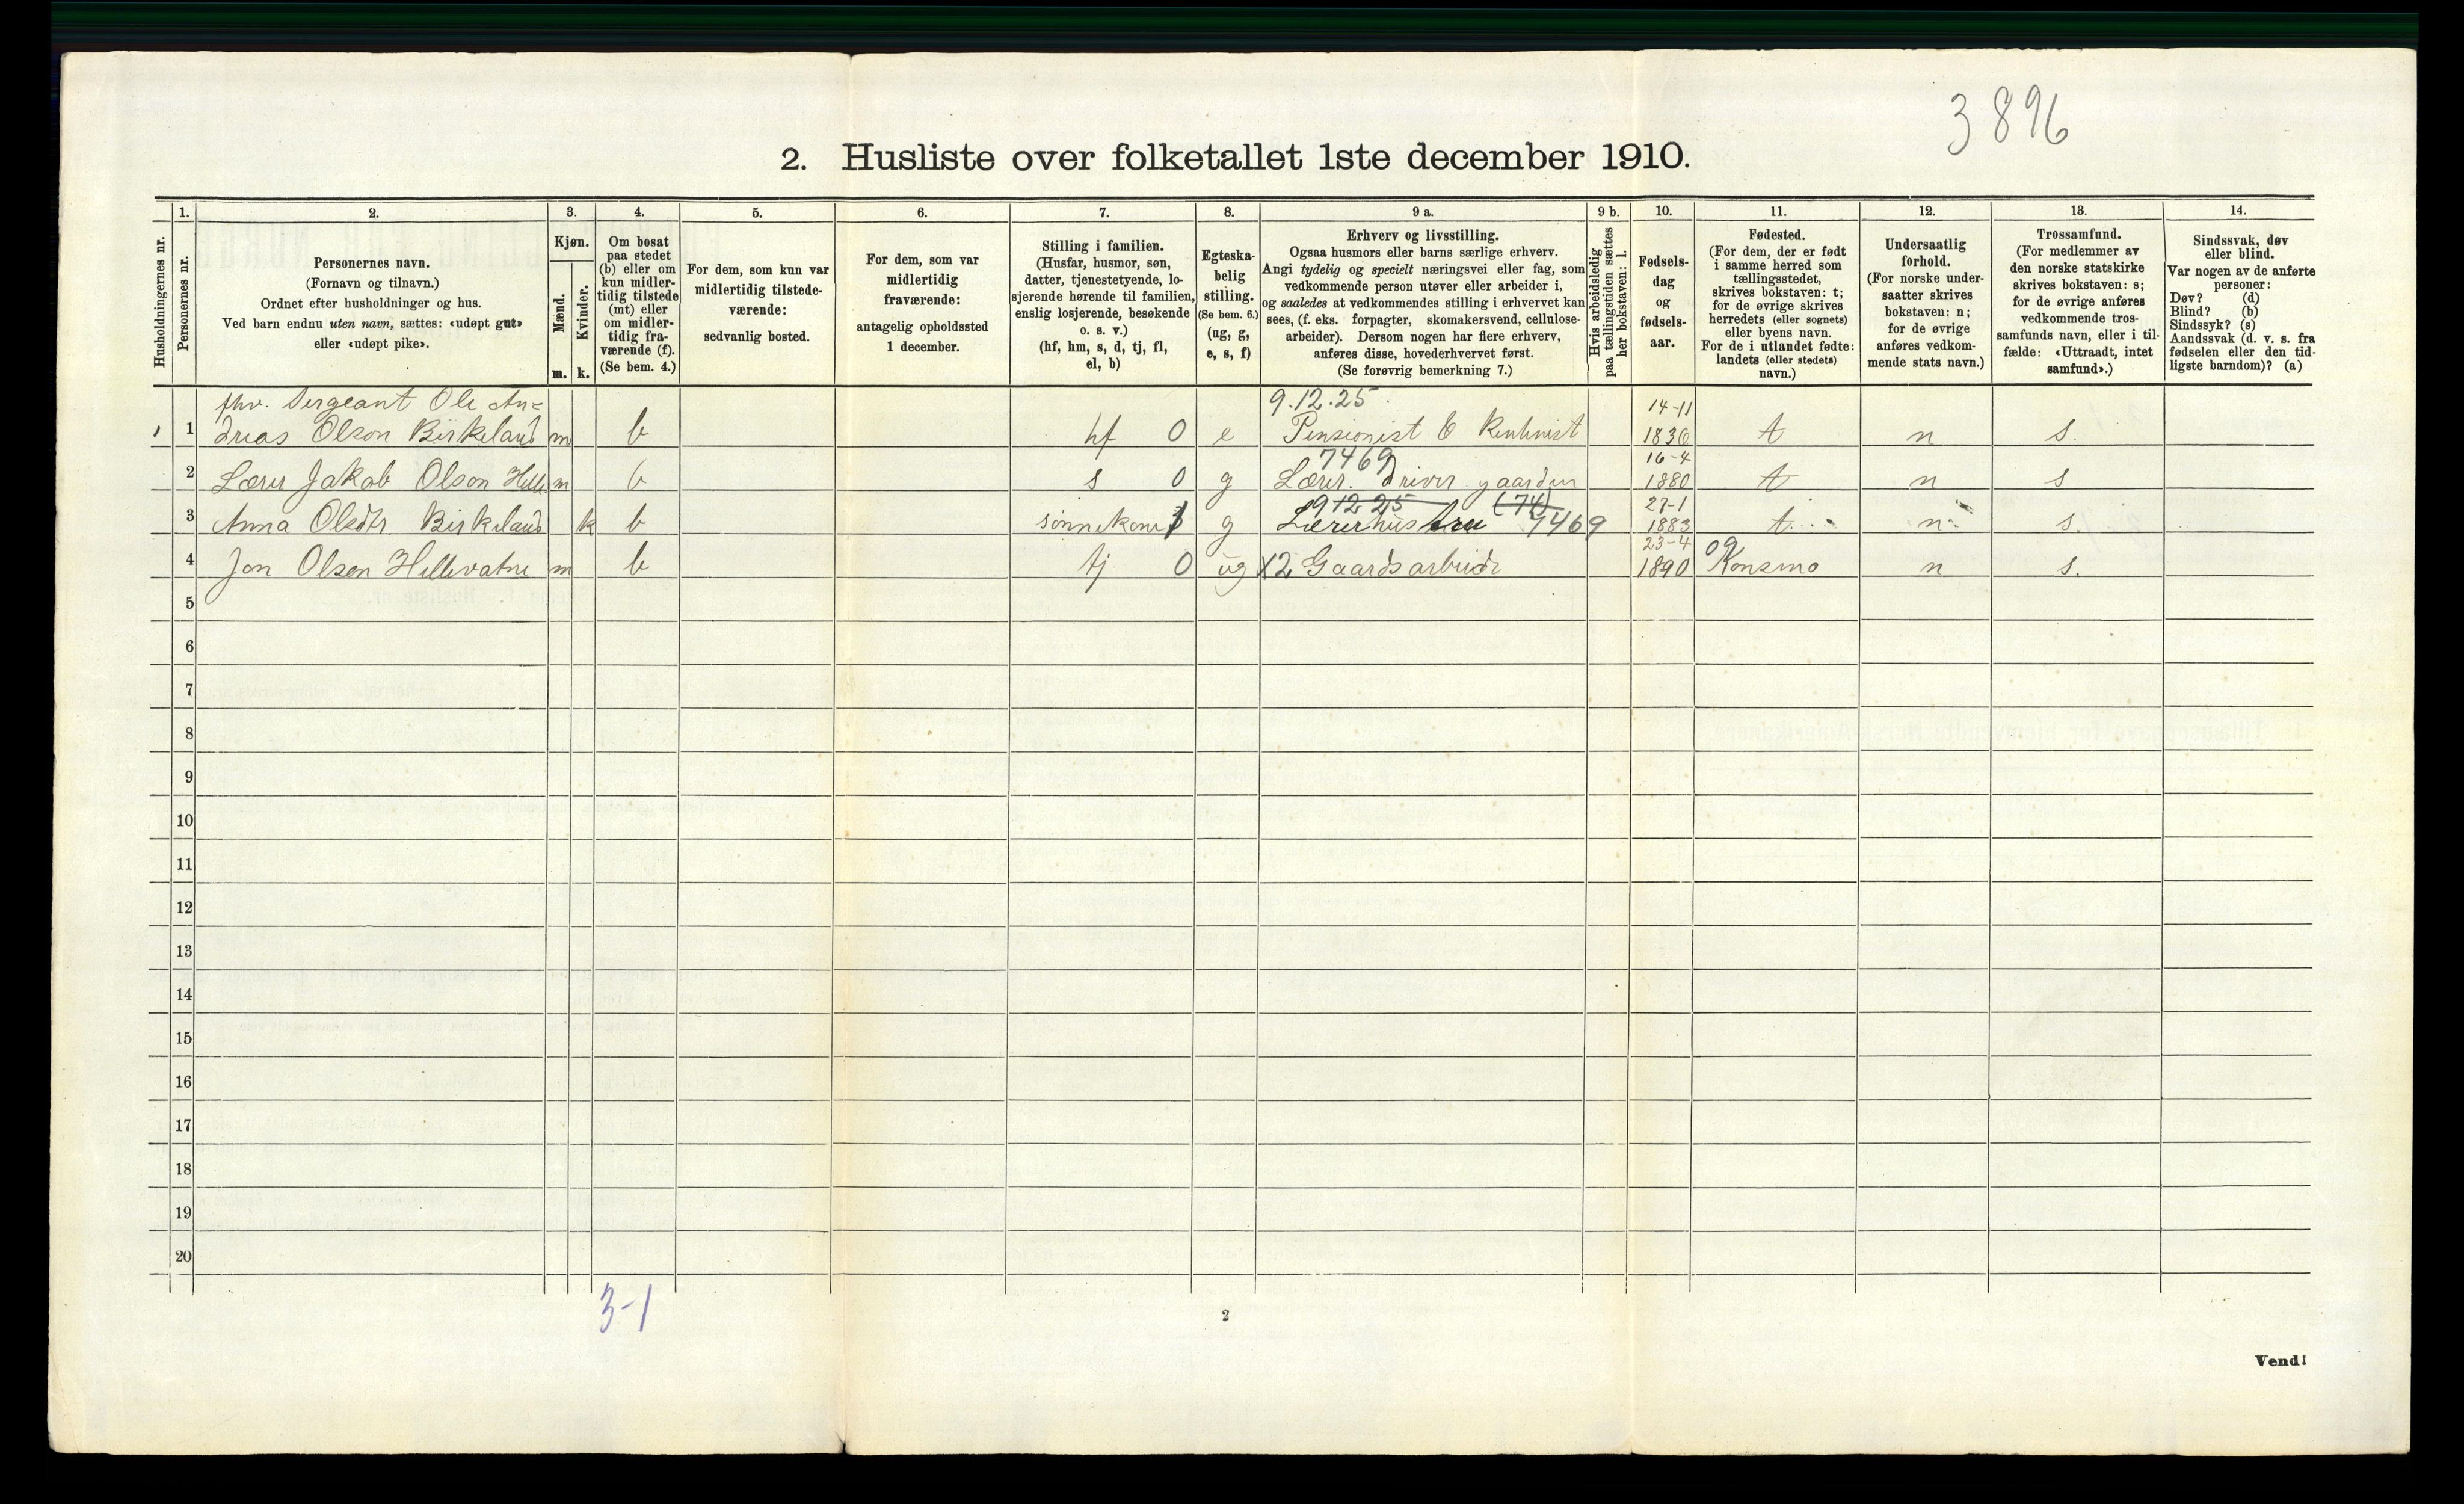 3896
2. Husliste over folketallet 1ste december 1910.
Husholdningernes nr.
1.
Personernes nr.
2.
Personernes navn.
(Fornavn og tilnavn.)
Ordnet efter husholdninger og hus.
Ved barn endnu uten navn, sættes: «udøpt gut»
eller «udøpt pike».
3.
Kjøn.
Mænd.
Kvinder.
m. k.
4.
Om bosat
paa stedet
(b) eller om
kun midler-
tidig tilstede
(mt) eller
om midler-
tidig fra-
værende (f).
(Se bem. 4.)
5.
For dem, som kun var
midlertidig tilstede-
værende:
sedvanlig bosted.
6.
For dem, som var
midlertidig
fraværende:
antagelig opholdssted
1 december.
7.
Stilling i familien.
(Husfar, husmor, søn,
datter, tjenestetyende, lo-
sjerende hørende til familien,
enslig losjerende, besøkende
o. s. v.)
(hf, hm, s, d, tj, fl,
el, b)
8.
Egteska-
belig
stilling.
(Se bem. 6.)
(ug, g,
e, s, f)
9 a.
Erhverv og livsstilling.
Ogsaa husmors eller barns særlige erhverv.
Angi tydelig og specielt næringsvei eller fag, som
vedkommende person utøver eller arbeider i,
og saaledes at vedkommendes stilling i erhvervet kan
sees, (f. eks. forpagter, skomakersvend, cellulose-
arbeider). Dersom nogen har flere erhverv,
anføres disse, hovederhvervet først.
(Se forøvrig bemerkning 7.)
9 b.
Hvis arbeidsledig
paa tællingstiden sættes
her bokstaven: l.
10.
Fødsels-
dag
og
fødsels-
aar.
11.
Fødested.
(For dem, der er født
i samme herred som
tællingsstedet,
skrives bokstaven: t;
for de øvrige skrives
herredets (eller sognets)
eller byens navn.
For de i utlandet fødte:
landets (eller stedets)
navn.)
12.
Undersaatlig
forhold.
(For norske under-
saatter skrives
bokstaven: n;
for de øvrige
anføres vedkom-
mende stats navn.)
13.
Trossamfund.
(For medlemmer av
den norske statskirke
skrives bokstaven: s;
for de øvrige anføres
vedkommende tros-
samfunds navn, eller i til-
fælde: «Uttraadt, intet
samfund».)
14.
Sindssvak, døv
eller blind.
Var nogen av de anførte
personer:
Døv? (d)
Blind? (b)
Sindssyk? (s)
Aandssvak (d. v. s. fra
fødselen eller den tid-
ligste barndom)? (a)
fhv. Sergeant Ole An= 9.12.25 14-11
1 1 dreas Olson Birkeland m b hf 0 e Pensionist 1836 t n s.
7469 16-4
2 Lærer Jakob Olson m b s 0 g Lærer. Driver gaarden 1880 t n s
9 12 25 (74) 27-1
3 Anna Olsdtr. Birkeland k b sønnekone g Lærerhustru 7469 1883 t n s.
23-4 09
4 Jon Olsen Hillevatne m b tj 0 ug X2 Gaardsarbeide 1890 Konsmo n s.
5
6
7
8
9
10
11
12
13
14
15
16
17
18
19
20
3-1
2
Vend!